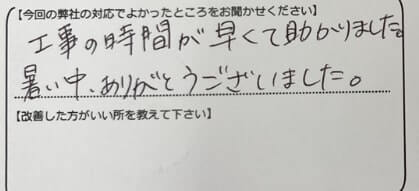 【今回の弊社の対応でよかったところをお聞かせください】
工事の時間が早くて助かりました。
暑い中、ありがとうございました。
【改善した方がいい所を教えて下さい】